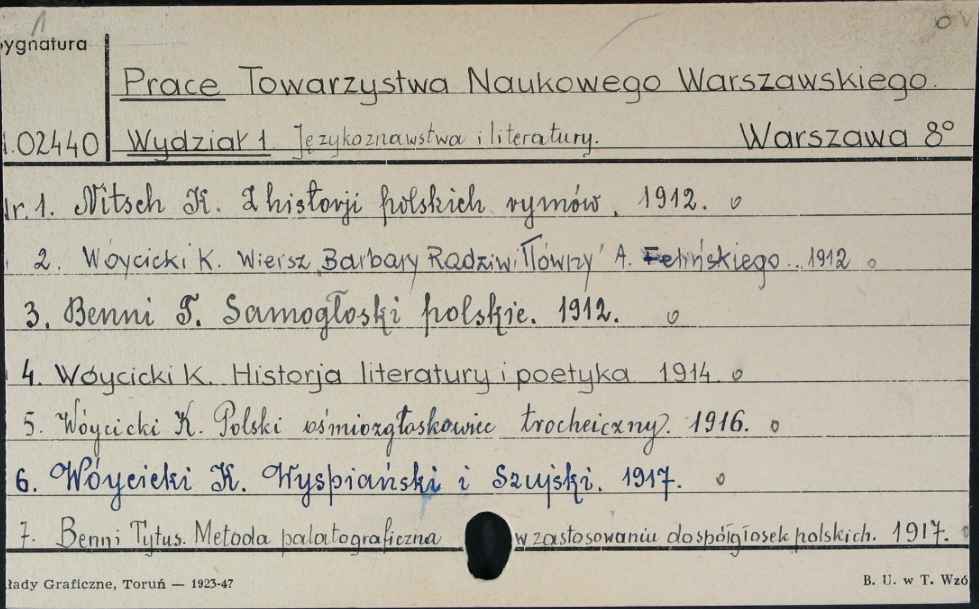 ygnatura
Prace Towarzystwa Naukowego Warszawskiego.
02440 Wydział 1. Językoznawstwa i literatury. Warszawa 8°
Nr. 1. Nitsch K. Z historji polskich rymów. 1912.
2. Wóycicki K. Wiersz „Barbary Radziwiłłówny" A. Felińskiego. 1912
3. Benni T. Samogłoski polskie. 1912.
4. Wóycicki K. Historja literatury i poetyka 1914.
5. Wóycicki K. Polski ośmiozgłoskowiec trocheiczny. 1916.
6. Wóycicki K. Wyspiański i Szujski. 1917.
7. Benni Tytus. Metoda palatograficzna w zastosowaniu do spółgłosek polskich. 1917.
łady Graficzne, Toruń — 1923-47 B. U. w T. Wzó